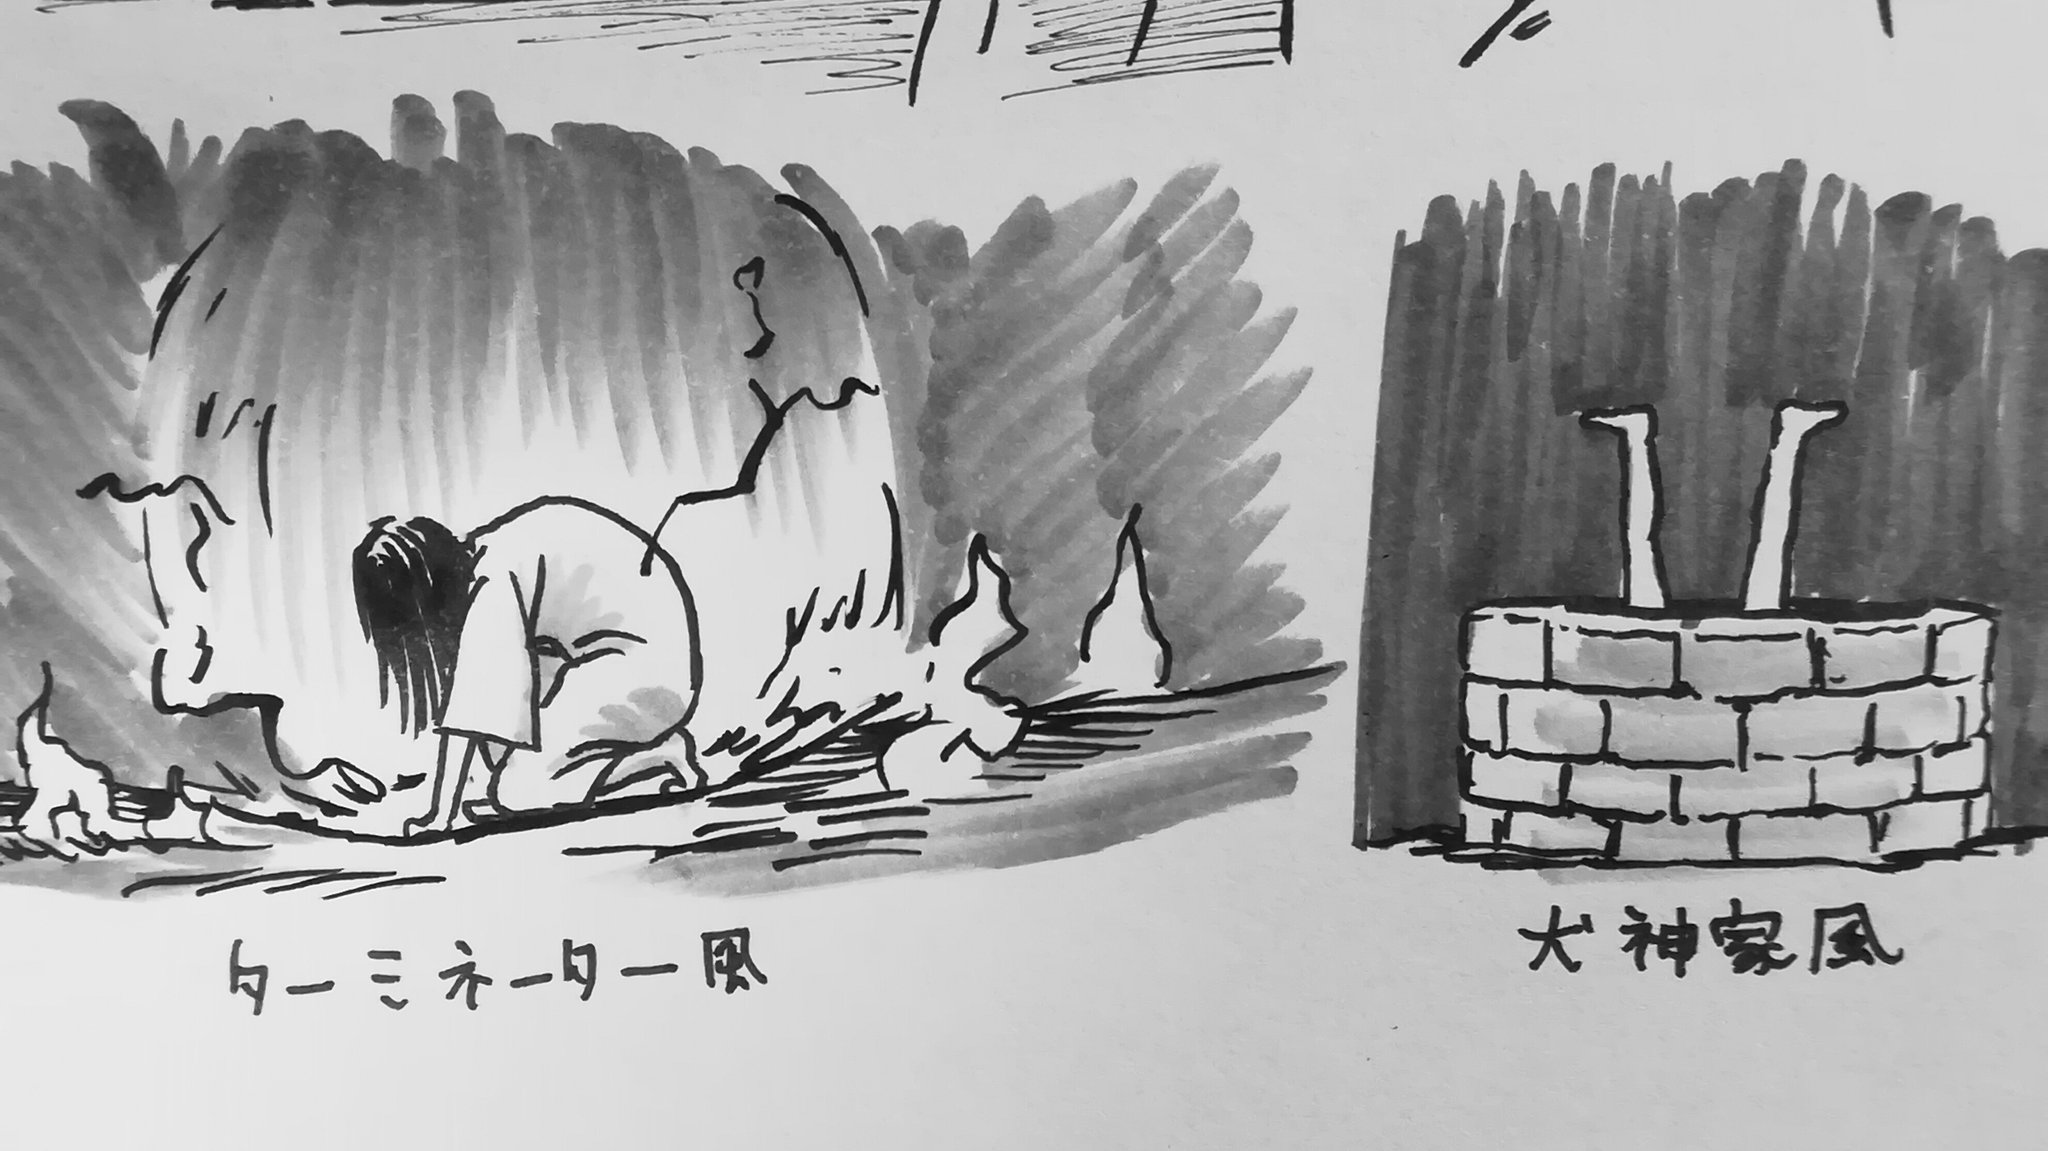 ターミネーター風
犬神家風